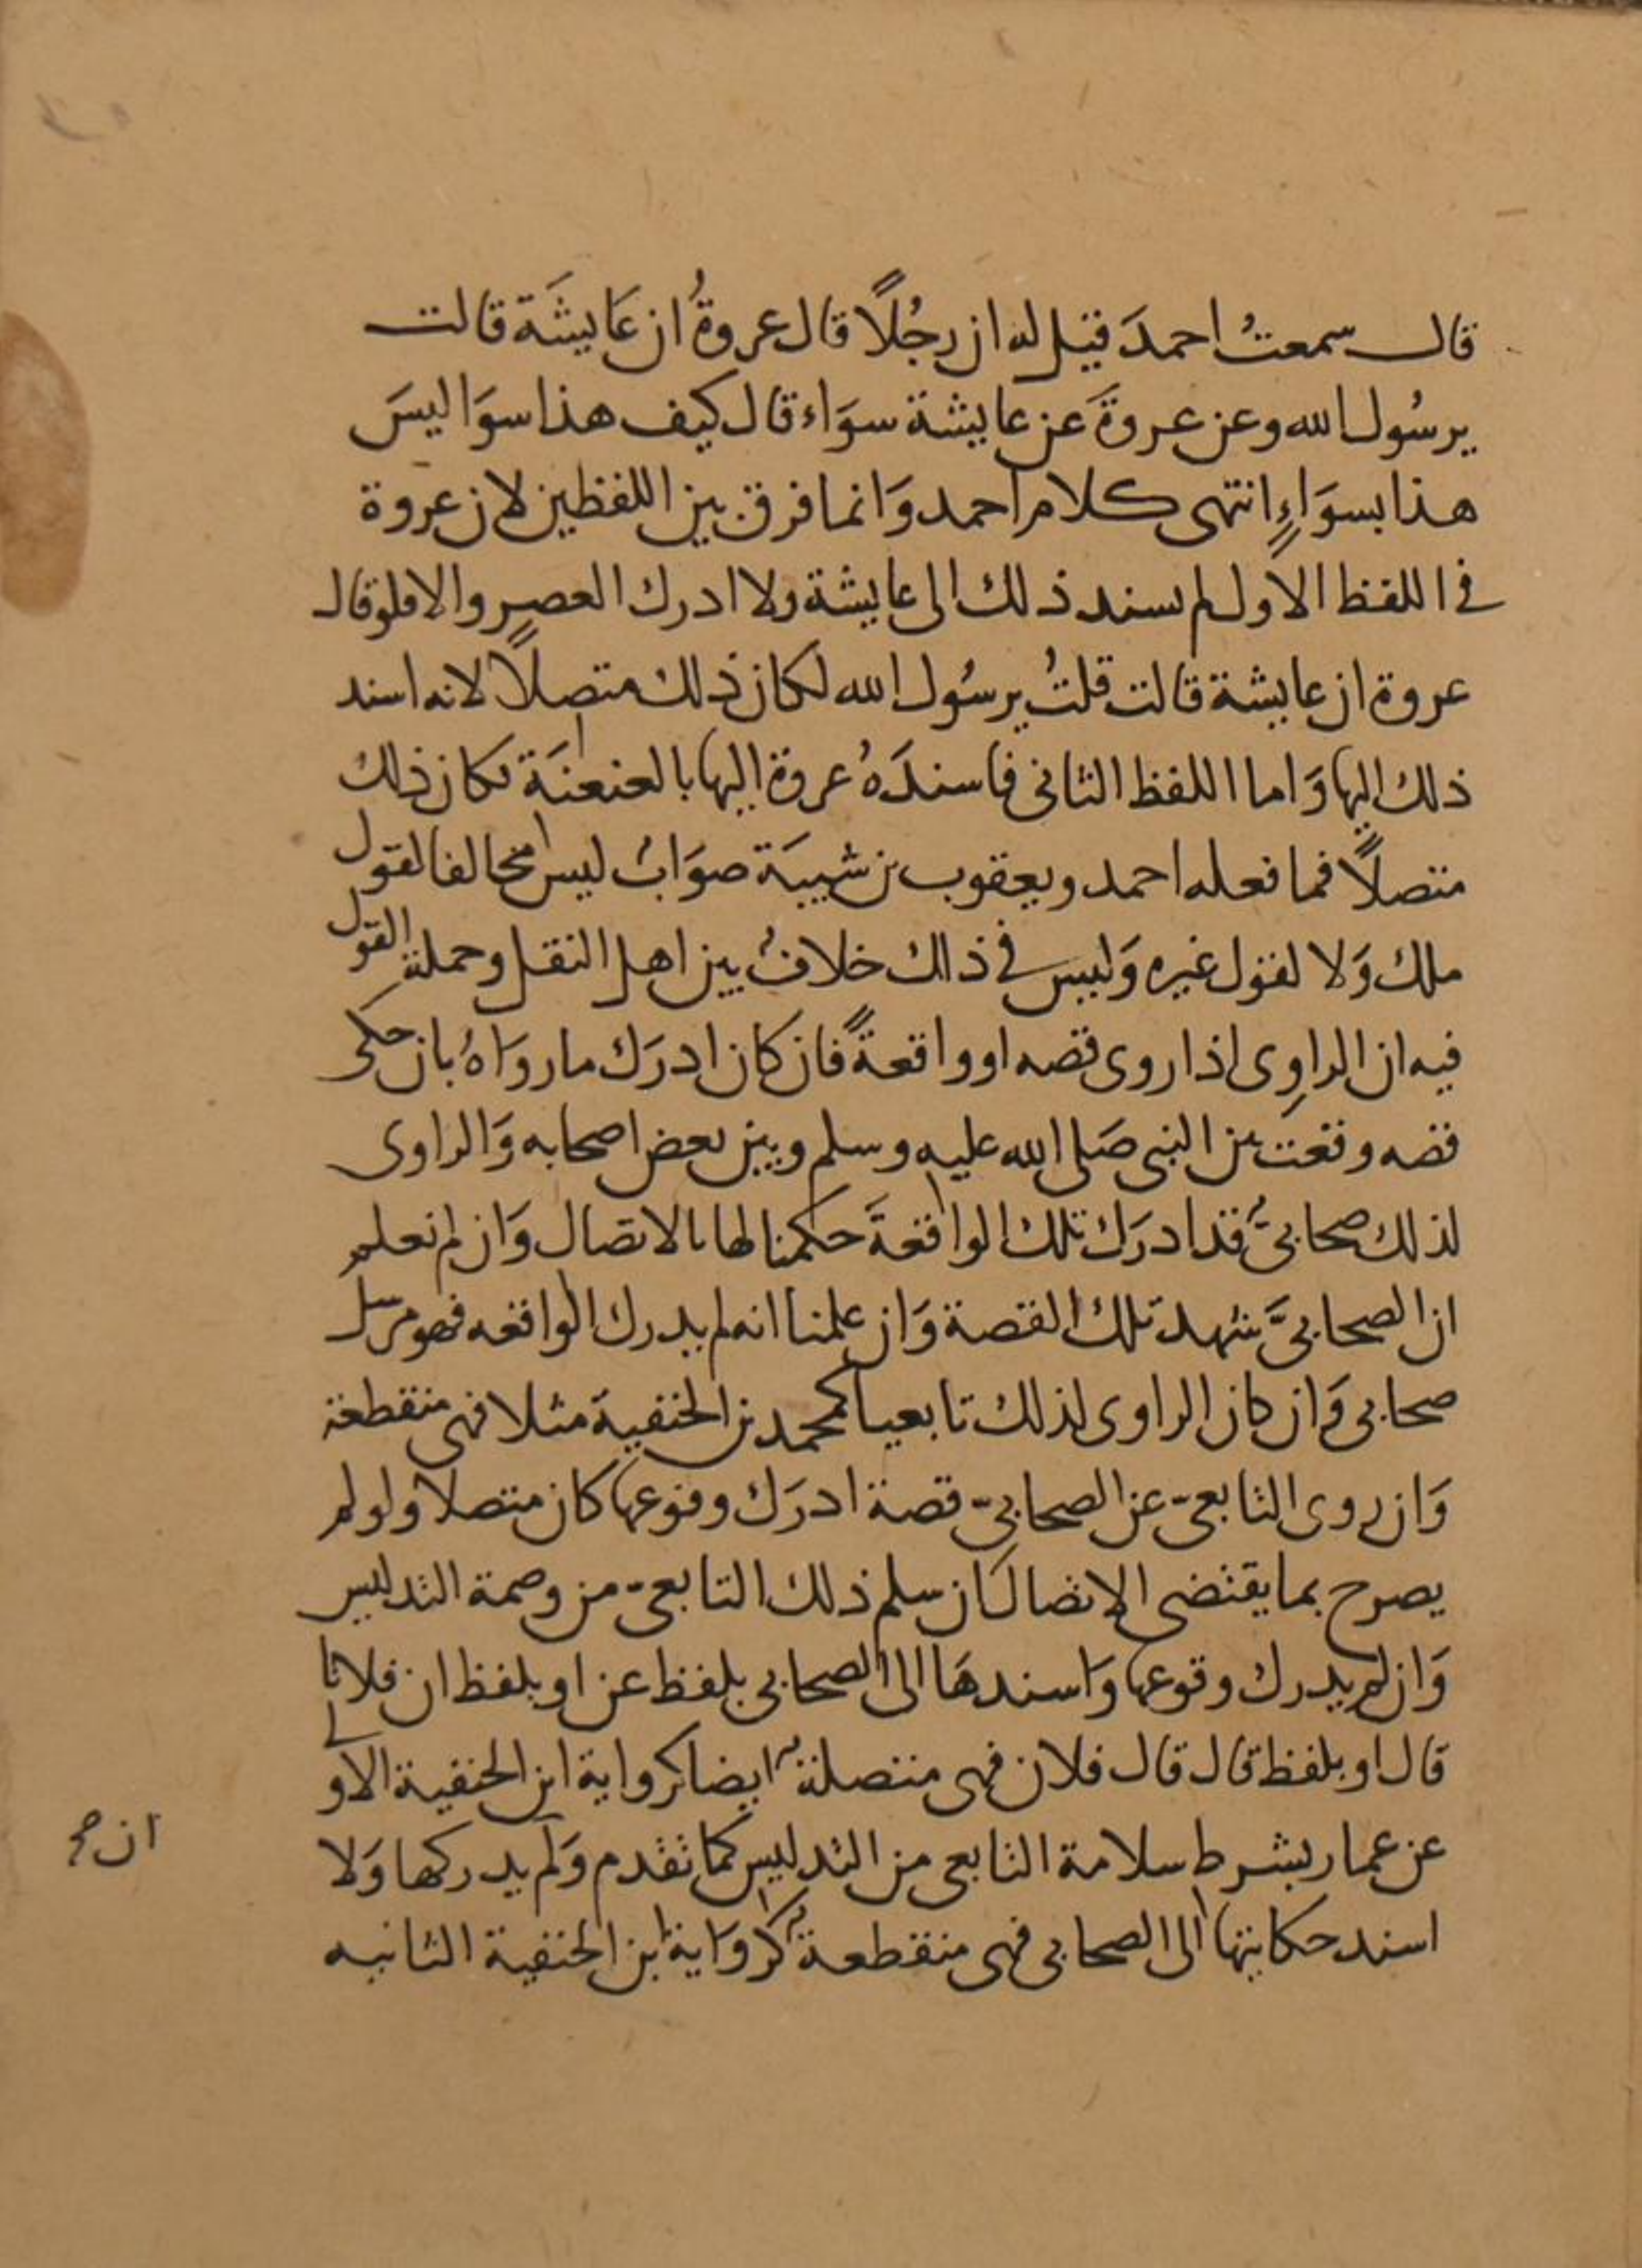 قال سمعتُ احمدَ قيل له ان رجُلاً قال عروةُ ان عَايشَة قالت
يرسُول الله وعن عروةَ عن عايشة سوَاء قال كيف هذا سوَا ليسَ
هذا بسوَاءٍ انتهى كلام احمد وَانما فرق بين اللفظين لان عروة
في اللفظ الاول لم يسند ذلك الى عايشة ولا ادرك العصر والا فلو قال
عروة ان عايشة قالت قلتُ يرسُول الله لكان ذلك متصلاً لانه اسند
ذلك اليها وَاما اللفظ الثاني فاسندَهُ عروة اليها بالعنعنَة فكان ذلك
متصلاً فما فعله احمد ويعقوب بن شيبَة صوَابٌ ليس مخالفا لقول
ملك وَلا لقول غيره وَليس في ذلك خلافٌ بين اهل النقل وحملة القول
فيه ان الراوِى اذا روى قصه او واقعةً فان كان ادرَك ما روَاهُ بان حكى
قصه وقعت بين النبى صَلى الله عليه وسلم وبين بعض اصحابه وَالراوى
لذلك صحابىٌّ قد ادرَك تلك الواقعةَ حكمنا لها بالاتصال وَان لم نعلم
ان الصحابىَّ شهد تلك القصة وَان علمنا انه لم يدرك الواقعه فهو مرسل
صحابى وَان كان الراوى لذلك تابعيا كمحمد بن الحنفية مثلا فهى منقطعة
وَان روى التابعىّ عن الصحابىّ قصة ادرَك وقوعها كان متصلا ولو لم
يصرح بما يقتضى الاتصال كان سلم ذلك التابعىّ من وصمة التدليس
وَان لم يدرك وقوعها وَاسندهَا الى الصحابى بلفظ عن او بلفظ ان فلانا
قال او بلفظ قال قال فلان فهى متصلةٌ ايضا كرواية ابن الحنفية الاولى
عن عمار بشرط سلامة التابعى من التدليس كما تقدم وَلم يدركها وَلا
اسند حكايتها الى الصحابى فهى منقطعةٌ كروَاية ابن الحنفية الثانيه
ان صح